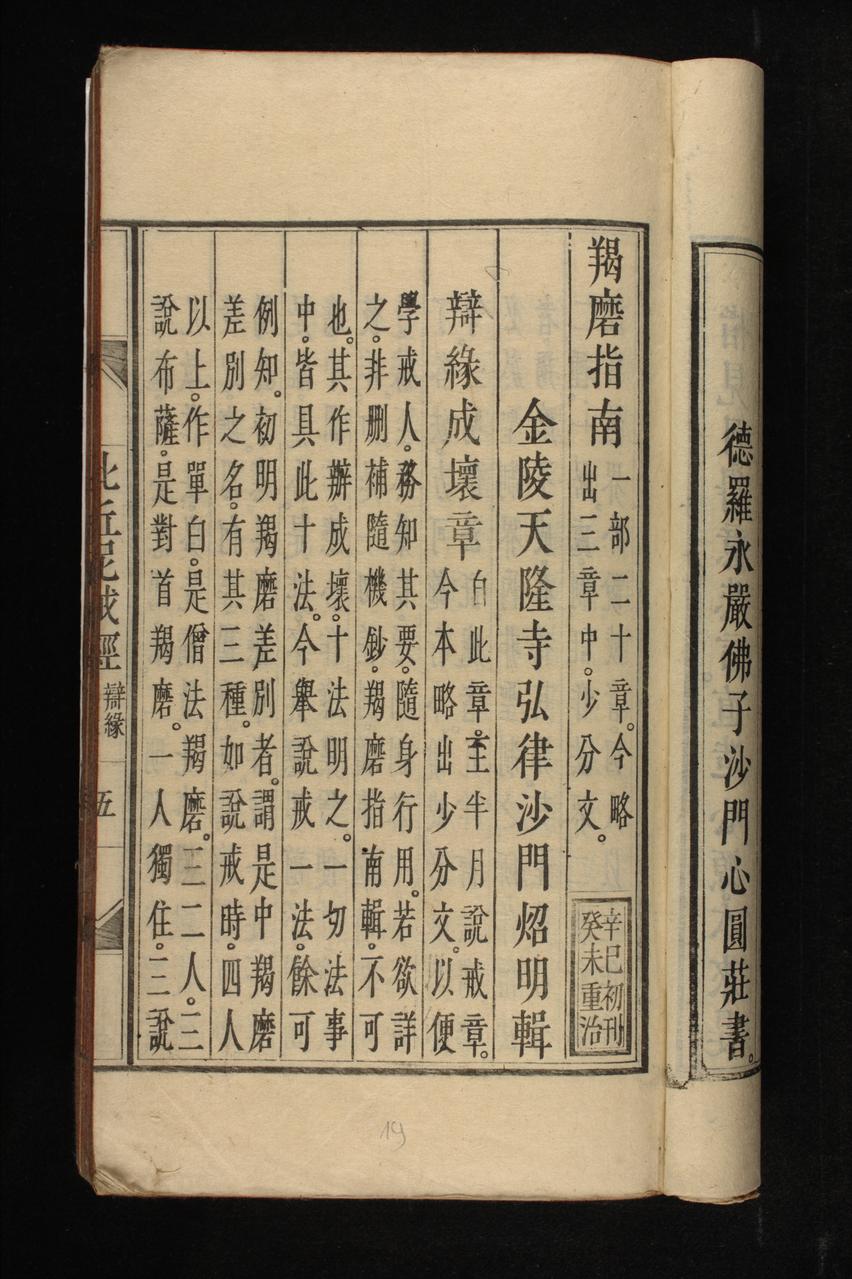 德羅永嚴佛子沙門心圓莊書。
羯磨指南
一部二十章。今略
出三章中。少分文。
辛巳初刊
癸未重治
金陵天隆寺弘律沙門炤明輯
辯緣成壞章
自此章。至半月說戒章。
今本略出少分文。以便
學戒人。務知其要。隨身行用。若欲詳
之。非刪補隨機鈔。羯磨指南輯。不可
也。其作辦成壞。十法明之。一切法事
中。皆具此十法。今舉說戒一法。餘可
例知。初明羯磨差別者。謂是中羯磨
差別之名。有其三種。如說戒時。四人
以上。作單白。是僧法羯磨。三二人。三
說布薩。是對首羯磨。一人獨住。三說
比丘尼戒經
辯緣
五
19